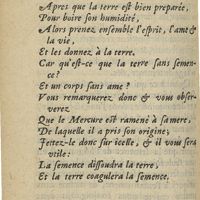 Apres que la terre est bien preparée,
Pour boire son humidité,
Alors prenez ensemble l'esprit, l'ame &
la vie,
Et les donnez à la terre.
Car qu'est-ce que la terre sans semen-
ce?
Et un corps sans ame?
Vous remarquerez donc & vous obser-
verez
Que le Mercure est ramené à sa mere,
De laquelle il a pris son origine;
Jettez-le donc sur icelle, & il vous sera
utile:
La semence dissoudra la terre,
Et la terre coagulera la semence.